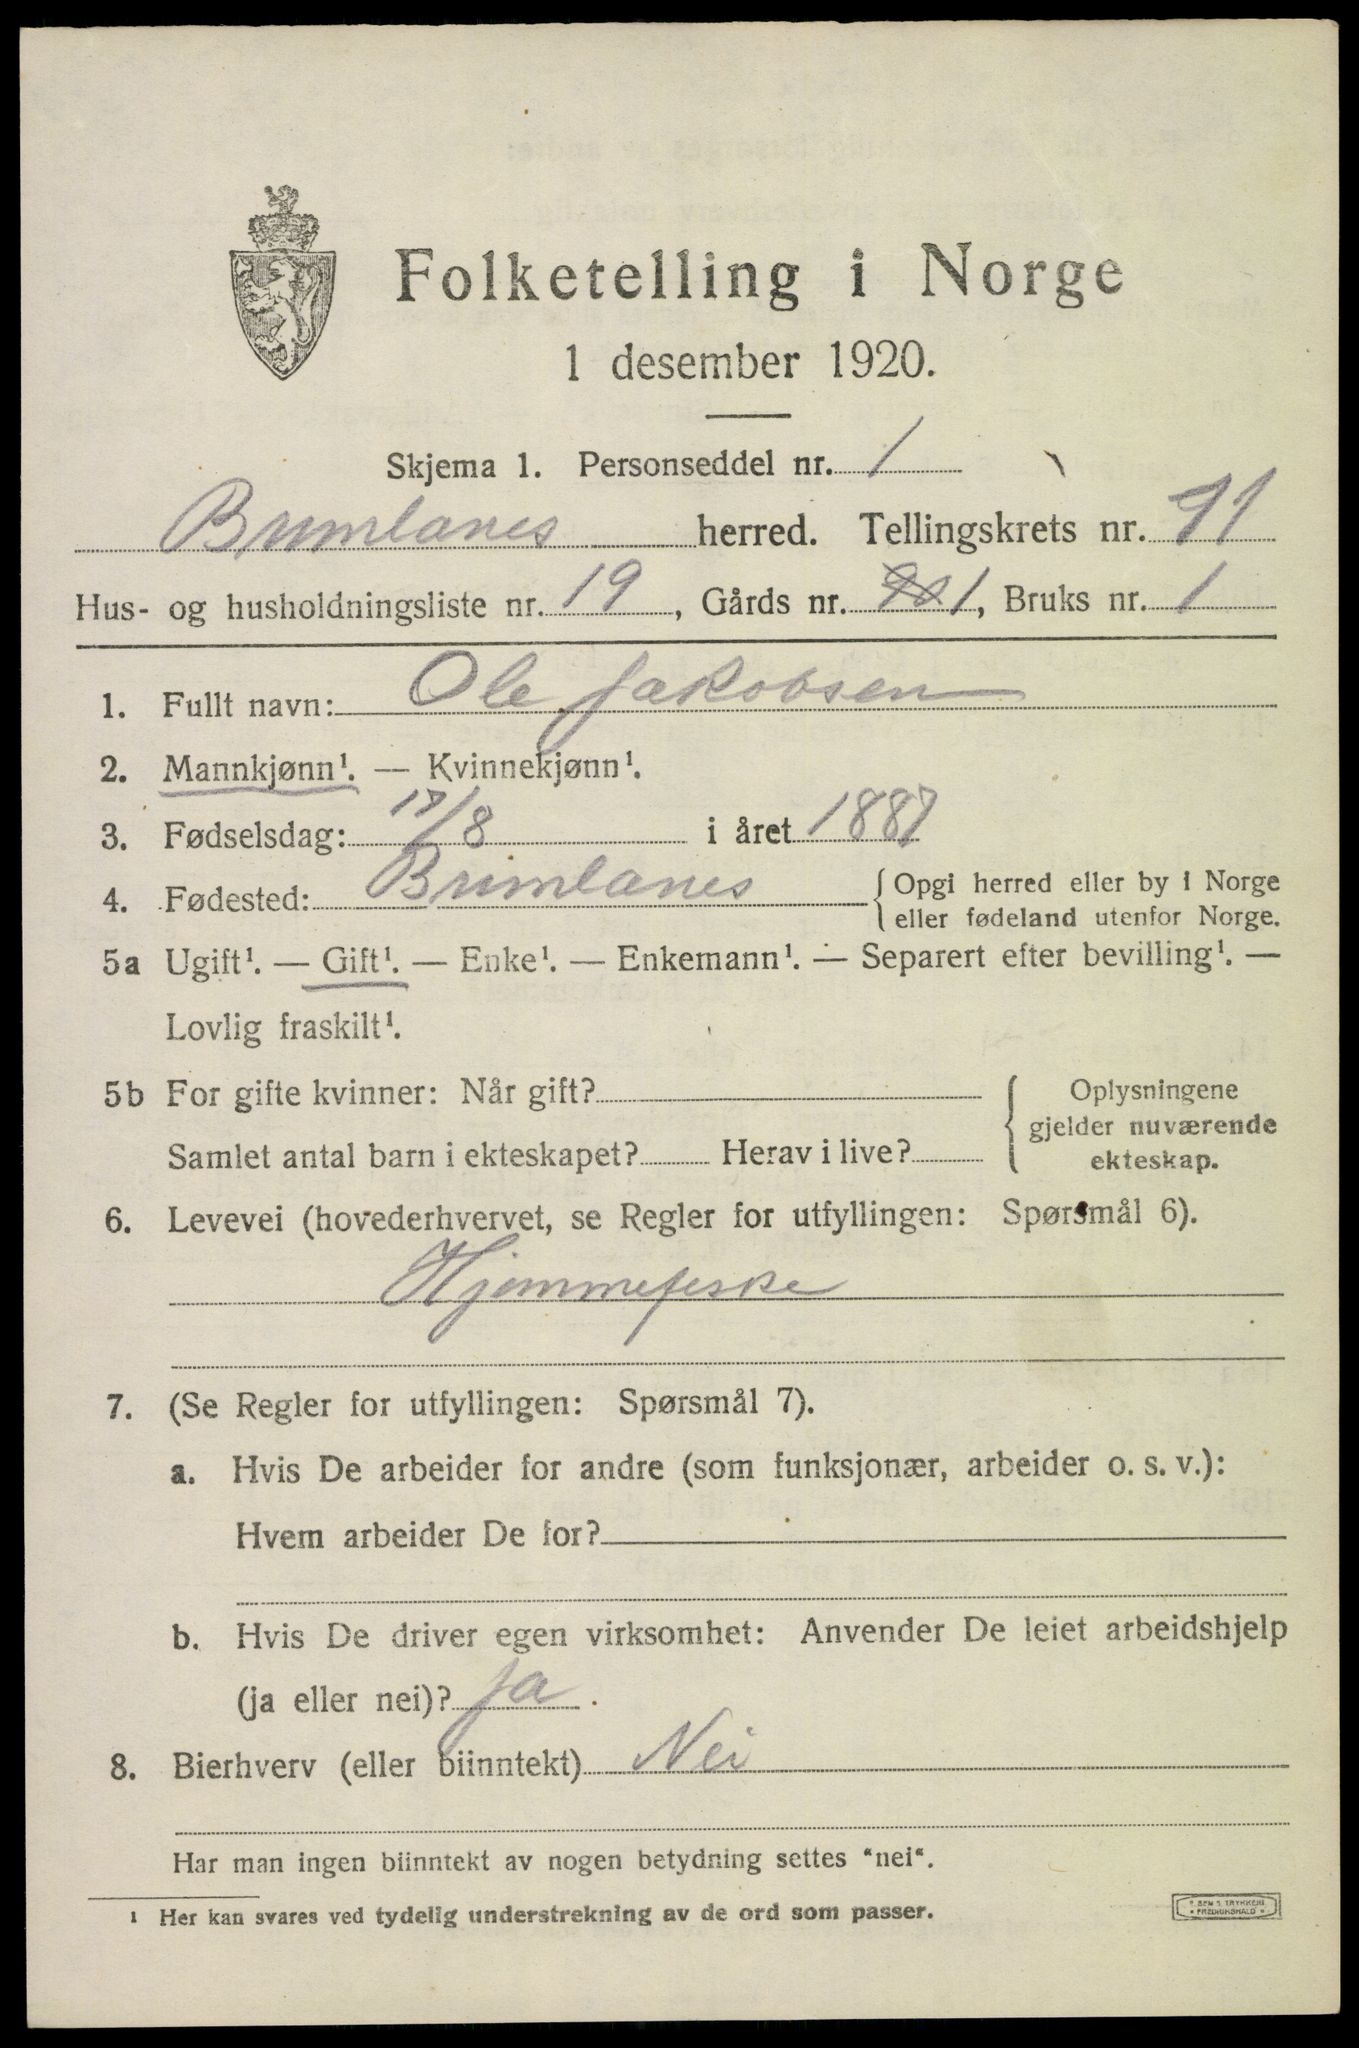 Folketelling i Norge
1 desember 1920.
Skjema 1. Personseddel nr. 1
Brunlanes herred. Tellingskrets nr. 11
Hus- og husholdningsliste nr. 19, Gårds nr. 1, Bruks nr. 1
1. Fullt navn: Ole Jakobsen
2. Mannkjønn¹. — Kvinnekjønn¹.
3. Fødselsdag: 17/8 i året 1887
4. Fødested: Brunlanes {Opgi herred eller by i Norge
eller fødeland utenfor Norge.
5a Ugift¹. — Gift¹. — Enke¹. — Enkemann¹. — Separert efter bevilling¹. —
Lovlig fraskilt¹.
5b For gifte kvinner: Når gift? Oplysningene
gjelder nuværende
Samlet antal barn i ekteskapet? Herav i live? ekteskap.
6. Levevei (hovederhvervet, se Regler for utfyllingen: Spørsmål 6).
Hjemmefeske
7. (Se Regler for utfyllingen: Spørsmål 7).
a. Hvis De arbeider for andre (som funksjonær, arbeider o. s. v.):
Hvem arbeider De for?
b. Hvis De driver egen virksomhet: Anvender De leiet arbeidshjelp
(ja eller nei)? Ja.
8. Bierhverv (eller biinntekt) Nei
Har man ingen biinntekt av nogen betydning settes "nei".
¹ Her kan svares ved tydelig understrekning av de ord som passer.